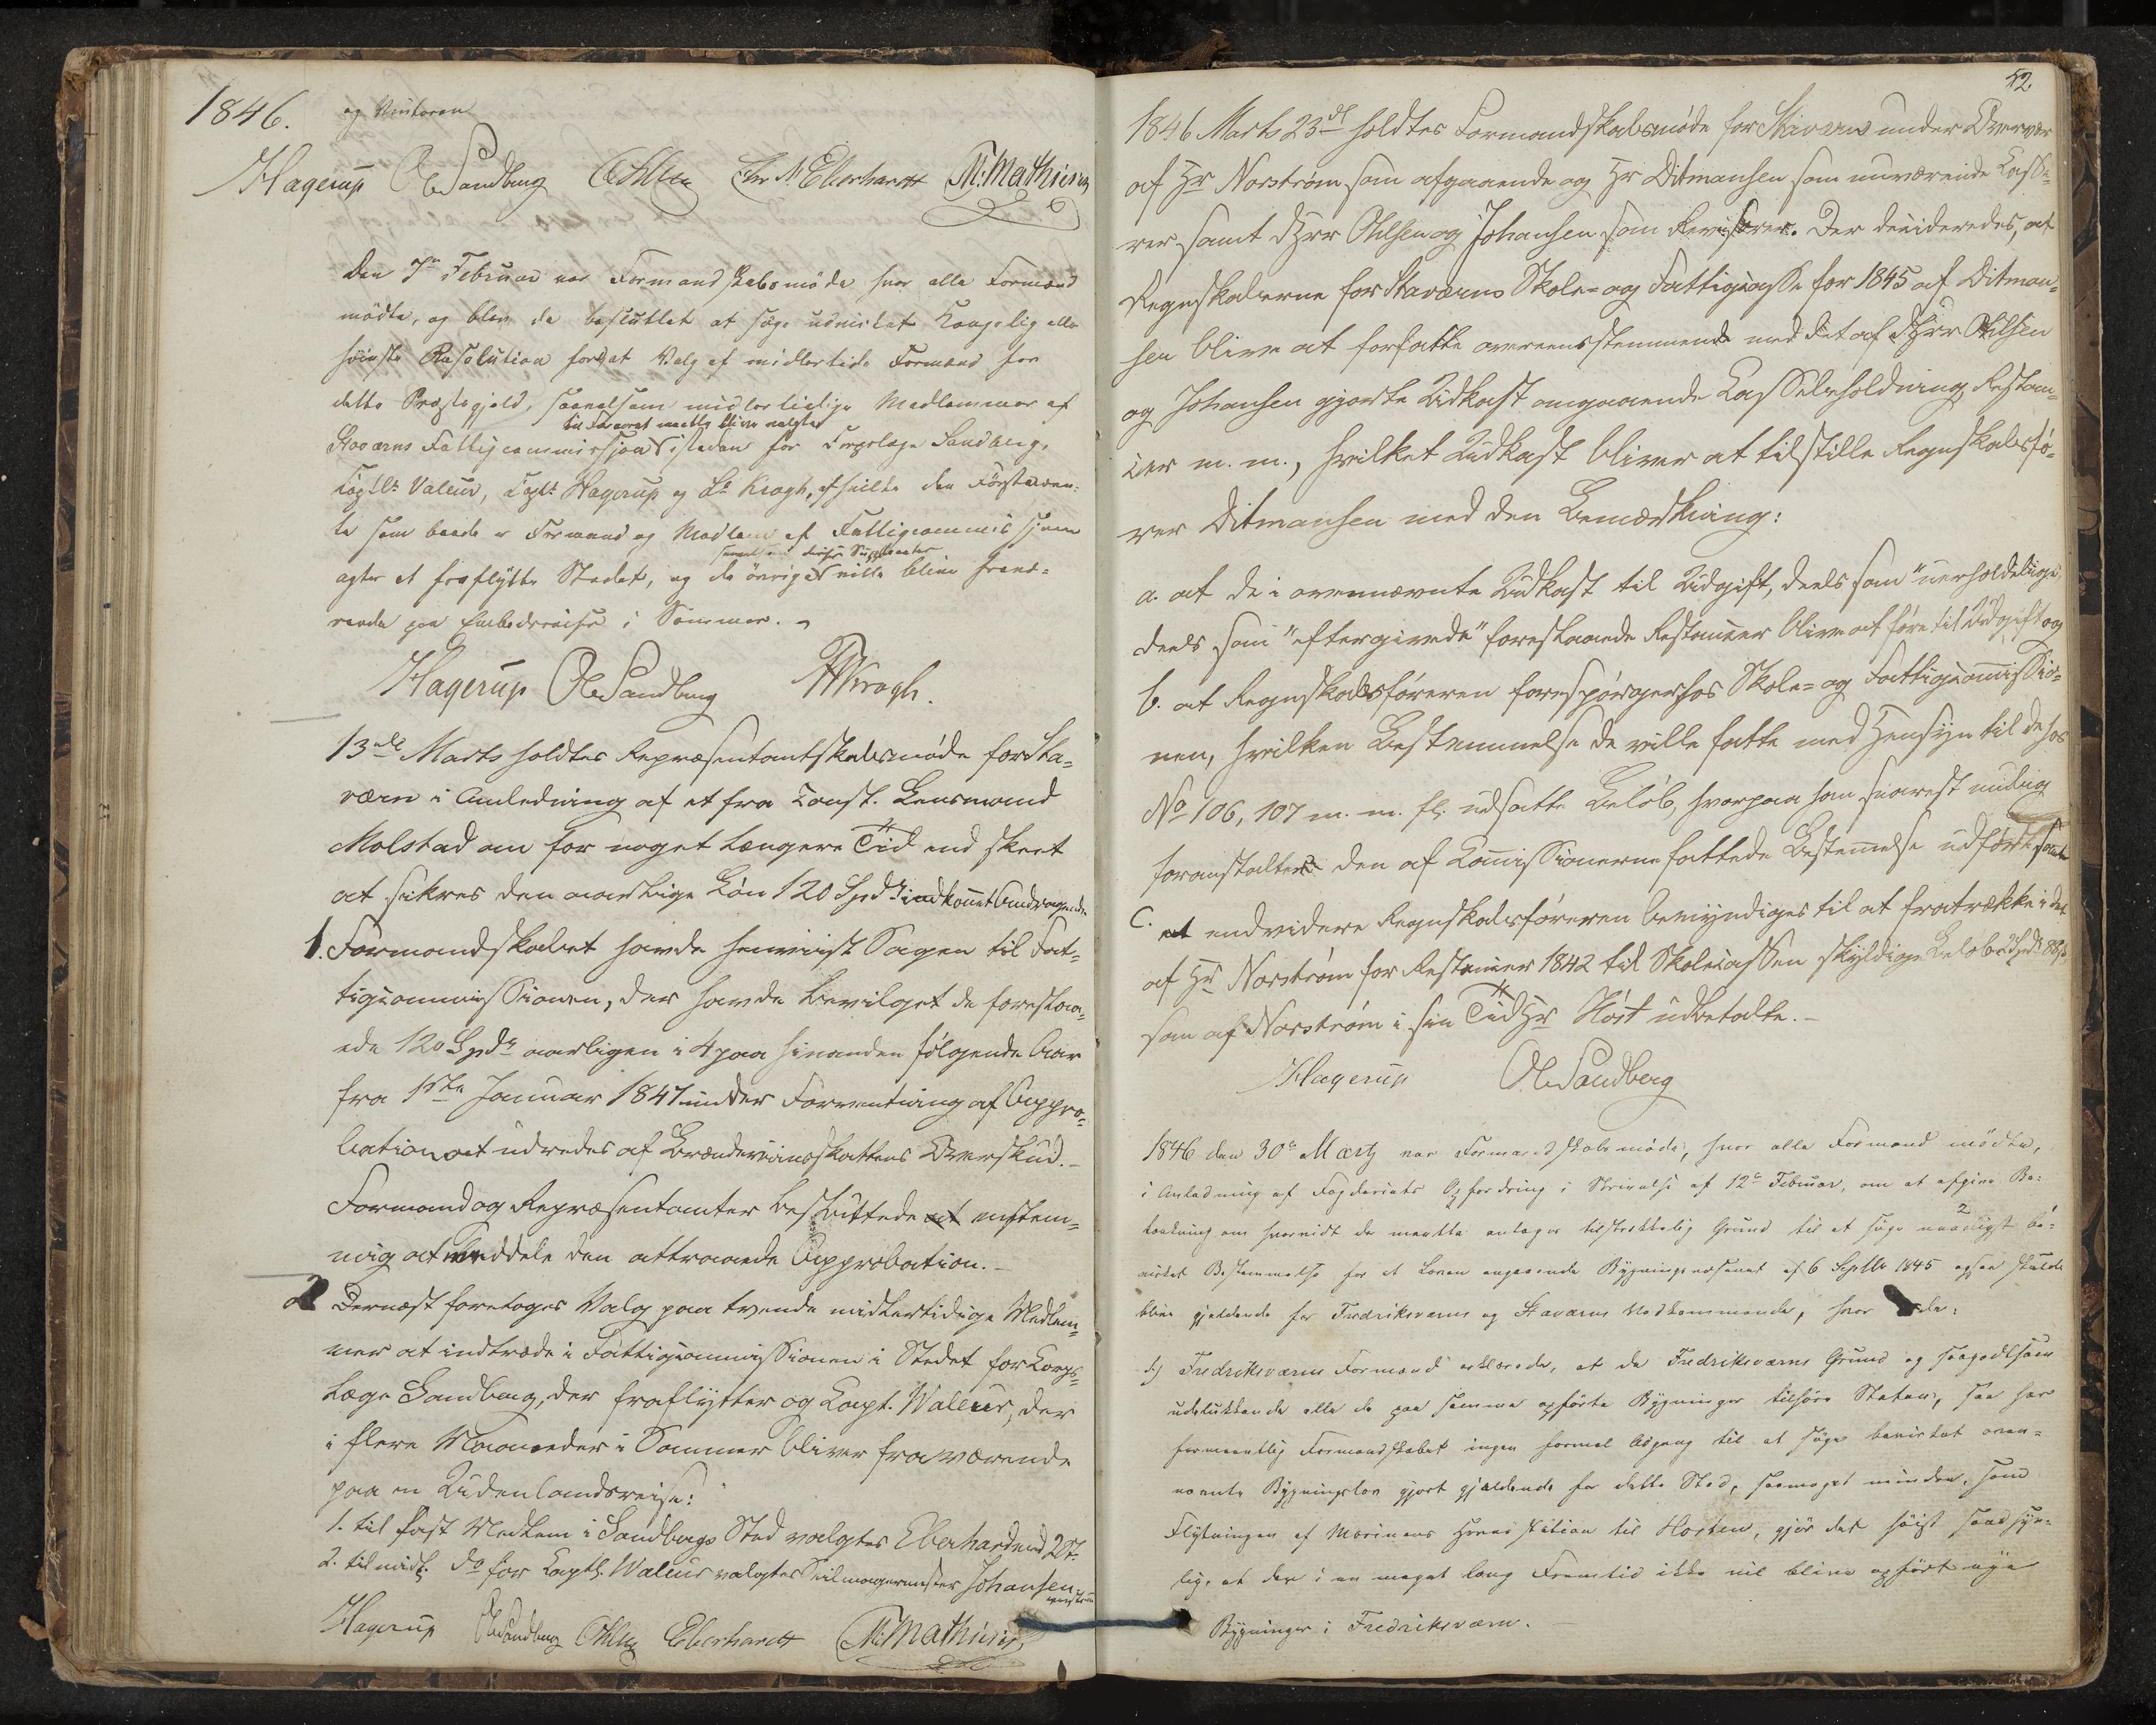 1846.
og Revisoren
Hagerup Ole Sandberg Ohlsen Chr. N. Eberhardt M. Mathiesen
Den 7de Februar var Formandskabsmøde hvor alle Formænd
mødte, og blev da besluttet at søge udvirket Kongelig aller
høieste Resolution for at Valg af midlertidige Formænd for
dette Præstegjeld, saavelsom midlertidige Medlemmer af
til Foraaret maatte blive valgte
Staværns Fattigcommission istedenfor Corpslæge Sandberg,
Captlt. Valeur, Captlt. Hagerup og Lt. Krogh, af hvilke den Førstnævn-
te som baade er Formand og Medlem af Fattigcommissionen
saavelsom deres Suppleanter
agter at fraflytte Stedet, og de øvrige ville blive fravæ-
rende paa Embedsreise i Sommer.
Hagerup Ole Sandberg Krogh.
13de Marts holdtes Repræsentantskabsmøde for Sta-
værn i Anledning af et fra Const. Lensmand
Molstad om for noget længere Tid end skeet
at sikres den aarlige Løn 120 Spd. indkommet Andragende
1. Formandskabet havde henviist Sagen til Fat-
tigcommissionen, der havde bevilget de foreslaa-
ede 120 Spdr aarligen i 4 paa hinanden følgende Aar
fra 1ste Januar 1847 under Forventning af Appro-
bation at udredes af Brændeviinsskattens Overskud.
Formænd og Repræsentanter besluttede enstem-
mig at meddele den attraaede Approbation.
2 Dernæst foretoges Valg paa tvende midlertidige Medlem-
mer at indtræde i Fattigcommissionen i Stedet for Corps-
Læge Sandberg, der fraflytter og Capt. Valeur, der
i flere Maaneder i Sommer bliver fraværende
paa en Udenlandsreise:
1. til fast Medlem i Sandbergs Sted valgtes Eberhardt med 2 St.
2. til midl. do for Captlt. Valeur valgtes Seilmagermester Johansen
Hagerup Ole Sandberg Ohlsen Eberhardt M. Mathiesen
52
1846 Marts 23de holdtes Formandskabsmøde for Staværns under Overvær
af Hr Norstrøm som afgaaende og Hr Ditmansen som nuværende Casse-
rer samt DHrr Ohlsen og Johansen som Revisorer. Der decideredes, at
Regnskaberne for Staværns Skole- og Fattigcasse for 1845 af Ditman-
sen blive at forfatte overeensstemmende med det af DHrr Ohlsen
og Johansen gjorte Udkast angaaende Cassebeholdning, Restan-
cer m. m., hvilket Udkast bliver at tilstille Regnskabsfø-
rer Ditmansen med den Bemærkning:
a. at de i ovennævnte Udkast til Udgift, deels som "uerholdelige,
deels som "eftergivede" foreslaaede Restancer blive at føre til Udgift og
b. at Regnskabsføreren forespørger hos Skole- og Fattigcommissio-
nen, hvilken Bestemmelse de ville fatte med Hensyn til de hos
No 106, 107 m. m. fl. udsatte Beløb, hvorpaa han snarest mulig
foranstalter den af Commissionerne fattede Bestemmelse udført samt
c. at endvidere Regnskabsføreren bemyndiges til at fratrække i det
af Hr Norstrøm for Restancer 1842 til Skolecassen skyldige Beløb
som af Norstrøm i sin Tid Hr Høst udbetalte.
Hagerup Ole Sandberg
1846 den 30te Martz var Formandskabsmøde, hvor alle Formænd mødte,
i Anledning af Fogderiets Opfordring i Skrivelse af 12te Februar, om at afgive Be-
tænkning om hvorvidt der maatte antages tilstrækkelig Grund til at søge naadigst be-
virket Bestemmelse for at Loven angaaende Bygningsvæsenet af 6 Septbr 1845 ogsaa skulde
blive gjældende for Fredriksværns og Staværns Vedkommende, hvor
1) Fredriksværns Formænd erklærede, at da Fredriksværns Grund og saagodtsom
udelukkende alle de paa samme opførte Bygninger tilhøre Staten, saa har
formeentlig Formandskabet ingen formel Adgang til at søge bevirket oven-
nævnte Bygningslov gjort gjældende for dette Sted, saameget mindre, som
Flytningen af Marinens Hovedstation til Horten, gjør det høist sandsyn-
lig, at der i en meget lang Fremtid ikke vil blive opført nye
Bygninger i Fredriksværn.